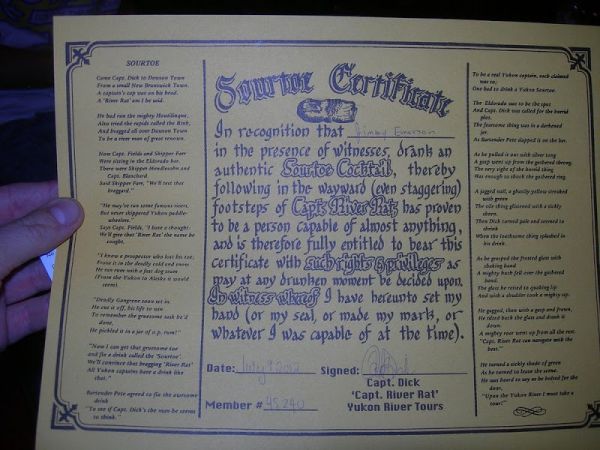 SOURTOE
Came Capt. Dick to Dawson Town
From a small New Brunswick Town.
A captain's cap was on his head.
A "River Rat" am I he said.
He had run the mighty Hootalinqua,
Also tried the rapids called the Rink,
And bragged all over Dawson Town
To be a river man of great renown.
Now Capt. Fields and Shipper Farr
Were sitting in the Eldorado bar.
There were Shipper Mendlesohn and
Capt. Blanchard.
Said Shipper Farr, "We'll test that
braggard."
"He may've run some famous rivers,
But never shippered Yukon paddle-
wheelers."
Says Capt. Fields, "I have a thought:
We'll give that 'River Rat' the name he
sought.
"I knew a prospector who lost his toe;
Froze it in the deadly cold and snow.
He ran rum with a fast dog team
(From the Yukon to Alaska it would
seem).
"Deadly Gangrene soon set in.
He cut it off, his life to win
To remember the gruesome task he'd
done,
He pickled it in a jar of o.p. rum!"
"Now I can get that gruesome toe
and fix a drink called the 'Sourtoe'.
We'll convince that bragging 'River Rat'
All Yukon captains have a drink like
that."
Bartender Pete agreed to fix the awesome
drink
"To see if Capt. Dick's the man he seems
to think."
Sourtoe Certificate
In recognition that Jimmy Emerson
in the presence of witnesses, drank an
authentic Sourtoe Cocktail, thereby
following in the wayward (even staggering)
footsteps of Capt. River Rat, has proven
to be a person capable of almost anything,
and is therefore fully entitled to bear this
certificate with such rights & privileges as
may at any drunken moment be decided upon.
In witness whereof I have hereunto set my
hand (or my seal, or made my mark, or
whatever I was capable of at the time).
Date: July 9 2012 Signed:
Capt. Dick
'Capt. River Rat'
Member # 45,240 Yukon River Tours
To be a real Yukon captain, each claimed
was so,
One had to drink a Yukon Sourtoe.
The Eldorado was to be the spot
And Capt. Dick was called for the horrid
plot.
The fearsome thing was in a darkened
jar.
As Bartender Pete slapped it on the bar.
As he pulled it out with silver tong
A gasp went up from the gathered throng.
The very sight of the horrid thing
Was enough to shock the gathered ring.
A jagged nail, a ghastly yellow streaked
with green
The vile thing glistened with a sickly
sheen.
Then Dick turned pale and seemed to
shrink
When the loathsome thing splashed in
his drink.
As he grasped the frosted glass with
shaking hand
A mighty hush fell over the gathered
band.
The glass he raised to quaking lip
And with a shudder took a mighty sip.
He gagged, then with a gasp and frown,
He tilted back the glass and drank it
down.
A mighty roar went up from all the rest:
"Capt. River Rat can navigate with the
best."
He turned a sickly shade of green
As he turned to leave the scene.
He was heard to say as he bolted for the
door,
"Upon the Yukon River I must take a
tour!"